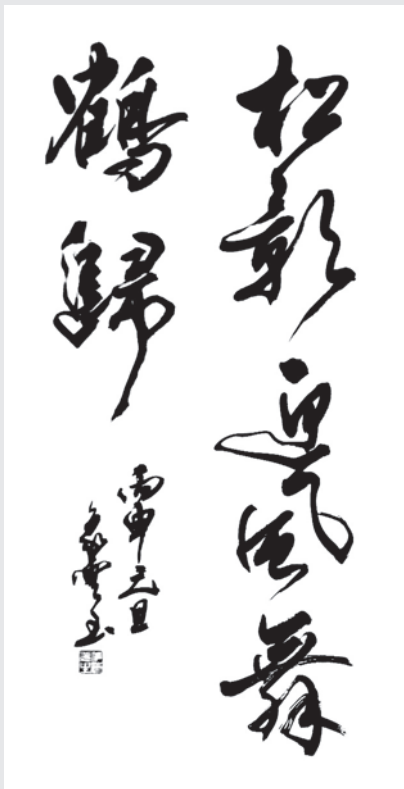 松影迎風舞
鶴歸
丙申元旦